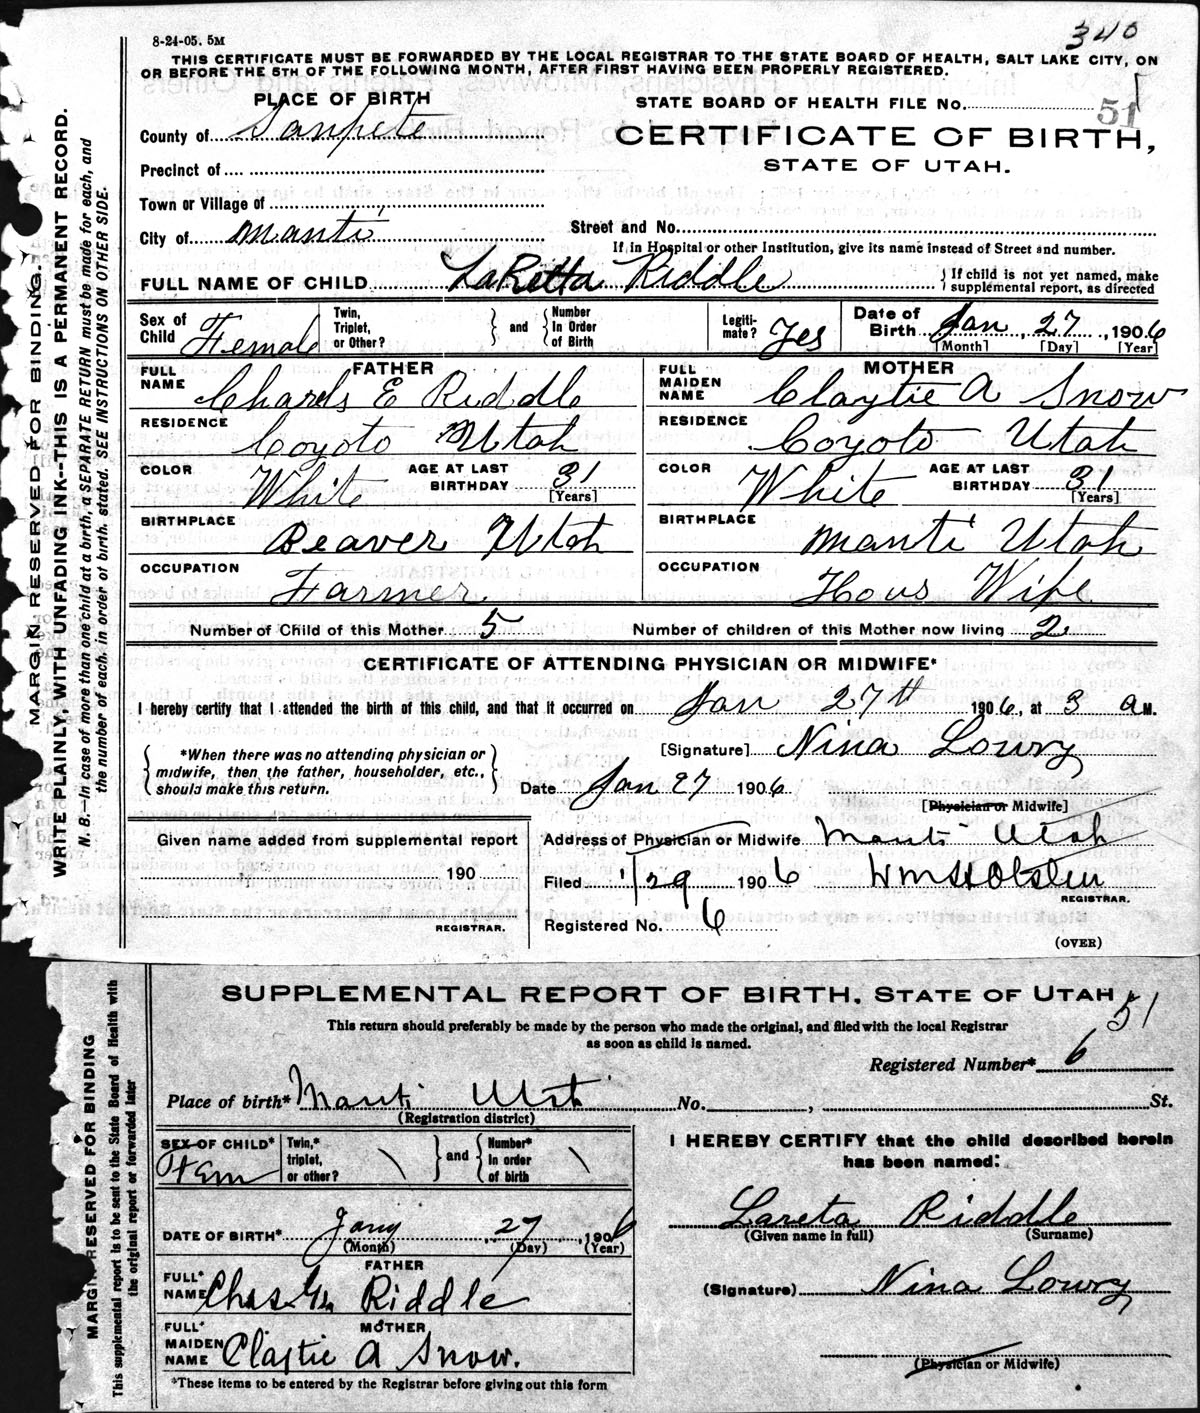 340
8-24-05. 5M
THIS CERTIFICATE MUST BE FORWARDED BY THE LOCAL REGISTRAR TO THE STATE BOARD OF HEALTH, SALT LAKE CITY, ON
OR BEFORE THE 5TH OF THE FOLLOWING MONTH, AFTER FIRST HAVING BEEN PROPERLY REGISTERED.
PLACE OF BIRTH
STATE BOARD OF HEALTH FILE No. 51
County of Sanpete
CERTIFICATE OF BIRTH,
STATE OF UTAH.
Precinct of
Town or Village of
City of Manti
Street and No.
If in Hospital or other Institution, give its name instead of Street and number.
FULL NAME OF CHILD LaRetta Riddle
If child is not yet named, make supplemental report, as directed
Sex of Child Female
Twin, Triplet, or Other? and Number In Order of Birth
Legitimate? Yes
Date of Birth Jan, 27, 1906
[Month] [Day] [Year]
FATHER
FULL NAME Charels E Riddle
RESIDENCE Coyoto Utah
COLOR White AGE AT LAST BIRTHDAY 31 [Years]
BIRTHPLACE Beaver Utah
OCCUPATION Farmer
MOTHER
FULL MAIDEN NAME Claytie A Snow
RESIDENCE Coyoto Utah
COLOR White AGE AT LAST BIRTHDAY 31 [Years]
BIRTHPLACE Manti Utah
OCCUPATION Hous Wife
Number of Child of this Mother 5 Number of children of this Mother now living 2
CERTIFICATE OF ATTENDING PHYSICIAN OR MIDWIFE*
I hereby certify that I attended the birth of this child, and that it occurred on Jan 27th 1906, at 3 a M.
*When there was no attending physician or
midwife, then the father, householder, etc.,
should make this return.
[Signature] Nina Lowry
Date Jan 27 1906
[Physician or Midwife]
Given name added from supplemental report
190
REGISTRAR.
Address of Physician or Midwife Manti Utah
Filed 1/29 1906
REGISTRAR.
Registered No. 6
(OVER)
MARGIN RESERVED FOR BINDING.
WRITE PLAINLY, WITH UNFADING INK--THIS IS A PERMANENT RECORD.
N. B.—In case of more than one child at a birth, a SEPARATE RETURN must be made for each, and
the number of each, in order of birth, stated. SEE INSTRUCTIONS ON OTHER SIDE.
SUPPLEMENTAL REPORT OF BIRTH. STATE OF UTAH
51
This return should preferably be made by the person who made the original, and filed with the local Registrar
as soon as child is named.
Registered Number* 6
Place of birth* Manti Utah No. , St.
(Registration district)
SEX OF CHILD* Fem
Twin,* triplet, or other? and Number* in order of birth
DATE OF BIRTH* Jany 27, 1906
(Month) (Day) (Year)
FATHER
FULL* NAME Chas Riddle
MOTHER
FULL* MAIDEN NAME Claytie A Snow.
*These items to be entered by the Registrar before giving out this form
I HEREBY CERTIFY that the child described herein
has been named:
Lareta Riddle
(Given name in full) (Surname)
(Signature) Nina Lowry
(Physician or Midwife)
MARGIN RESERVED FOR BINDING
This supplemental report is to be sent to the State Board of Health with
the original report or forwarded later